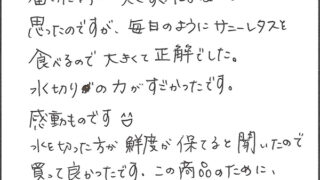 思ったのですが、毎日のようにサニーレタスを
食べるので大きくて正解でした。
水切りの力がすごかったです。
感動ものです
水を切った方が鮮度が保てると聞いたので
買って良かったです。この商品のために、